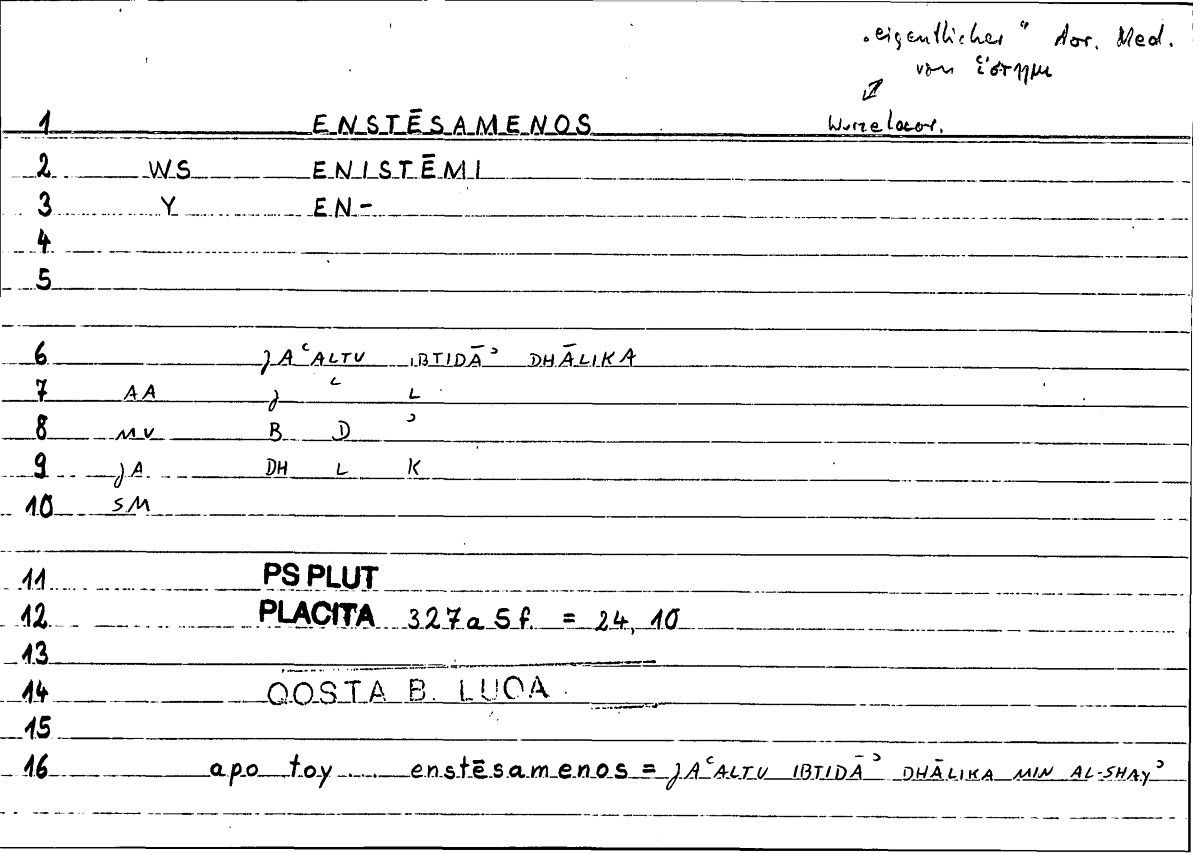 „eigentlicher“ Aor. Med.
von ἵστημι
Wurzelaor.
1 ENSTĒSAMENOS
2 WS ENISTĒMI
3 Y EN-
4
5
6 JAʿALTU IBTIDĀʾ DHĀLIKA
7 AA J ʿ L
8 MV B D ʾ
9 JA DH L K
10 SM
11 PS PLUT
12 PLACITA 327a 5f. = 24, 10
13
14 QOSTA B. LUQA
15
16 apo toy ... enstēsamenos = JAʿALTU IBTIDĀʾ DHĀLIKA MIN AL-SHAYʾ